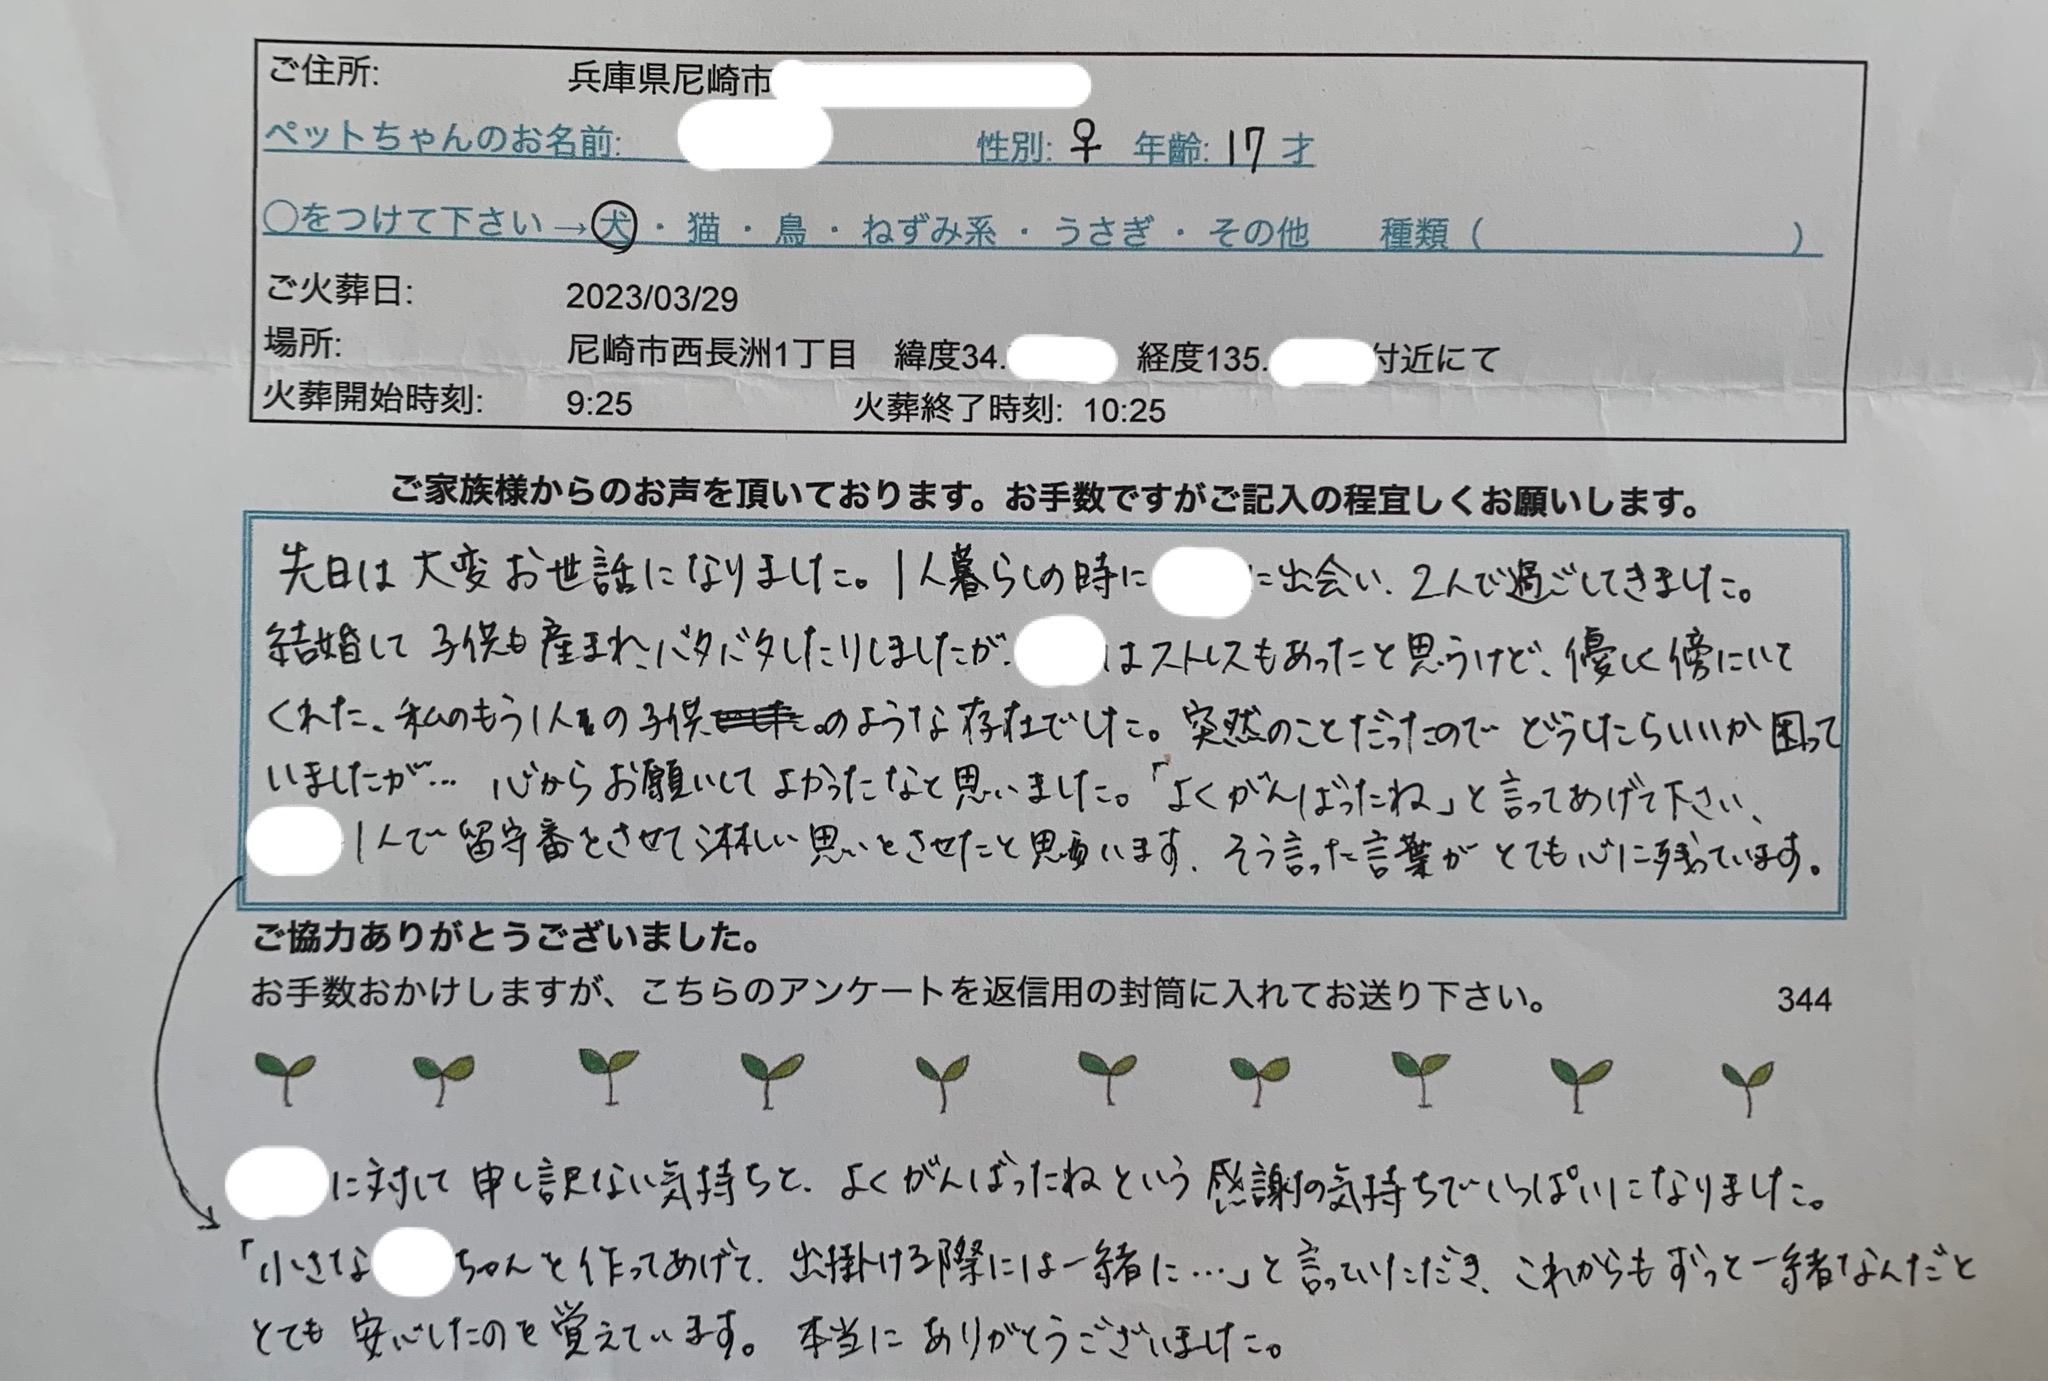 ご住所: 兵庫県尼崎市
ペットちゃんのお名前: 性別: ♀ 年齢: 17 才
○をつけて下さい→犬・猫・鳥・ねずみ系・うさぎ・その他 種類( )
ご火葬日: 2023/03/29
場所: 尼崎市西長洲1丁目 緯度34. 経度135. 付近にて
火葬開始時刻: 9:25 火葬終了時刻: 10:25
ご家族様からのお声を頂いております。お手数ですがご記入の程宜しくお願いします。
先日は大変お世話になりました。1人暮らしの時に に出会い、2人で過ごしてきました。
結婚して子供も産まれ、バタバタしたりしましたが、 はストレスもあったと思うけど、優しく傍にいて
くれた、私のもう1人の子供のような存在でした。突然のことだったのでどうしたらいいか困って
いましたが… 心からお願いしてよかったなと思いました。「よくがんばったね」と言ってあげて下さい、
1人で留守番をさせて淋しい思いをさせたと思います、そう言った言葉がとても心に残っています。
ご協力ありがとうございました。
お手数おかけしますが、こちらのアンケートを返信用の封筒に入れてお送り下さい。 344
に対して申し訳ない気持ちと、よくがんばったねという感謝の気持ちでいっぱいになりました。
「小さな ちゃんを作ってあげて、出掛ける際には一緒に…」と言っていただき、これからもずっと一緒なんだと
とても安心したのを覚えています。本当にありがとうございました。